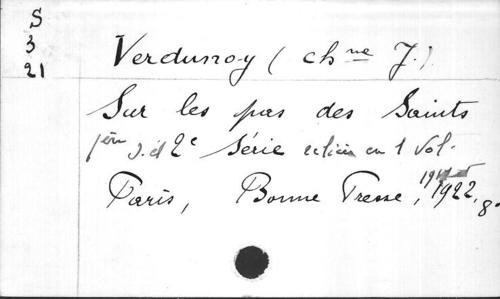 S
3
21
Verdunoy (chne J.)
Sur les pas des Saints
1ère s. et 2e Série reliées en 1 Vol.
Paris, Bonne Presse, 1922, 8°